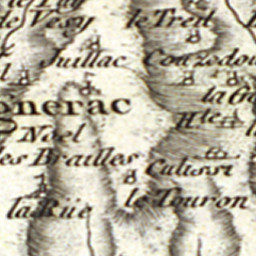 le Puy
de Vesy le Treil
Juillac Couzedou
gnerac la Ga
Noel Hte
les Brailles Calissi
la Rüe le Touron